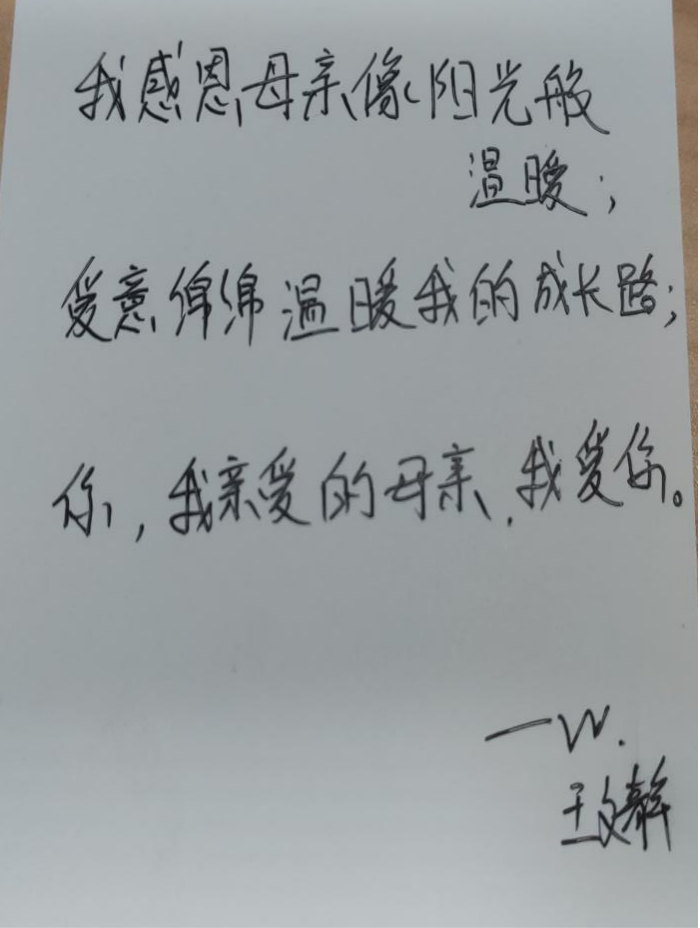 我感恩母亲像阳光般
温暖；
爱意绵绵温暖我的成长路；
你，我亲爱的母亲，我爱你。
—W.
王文静